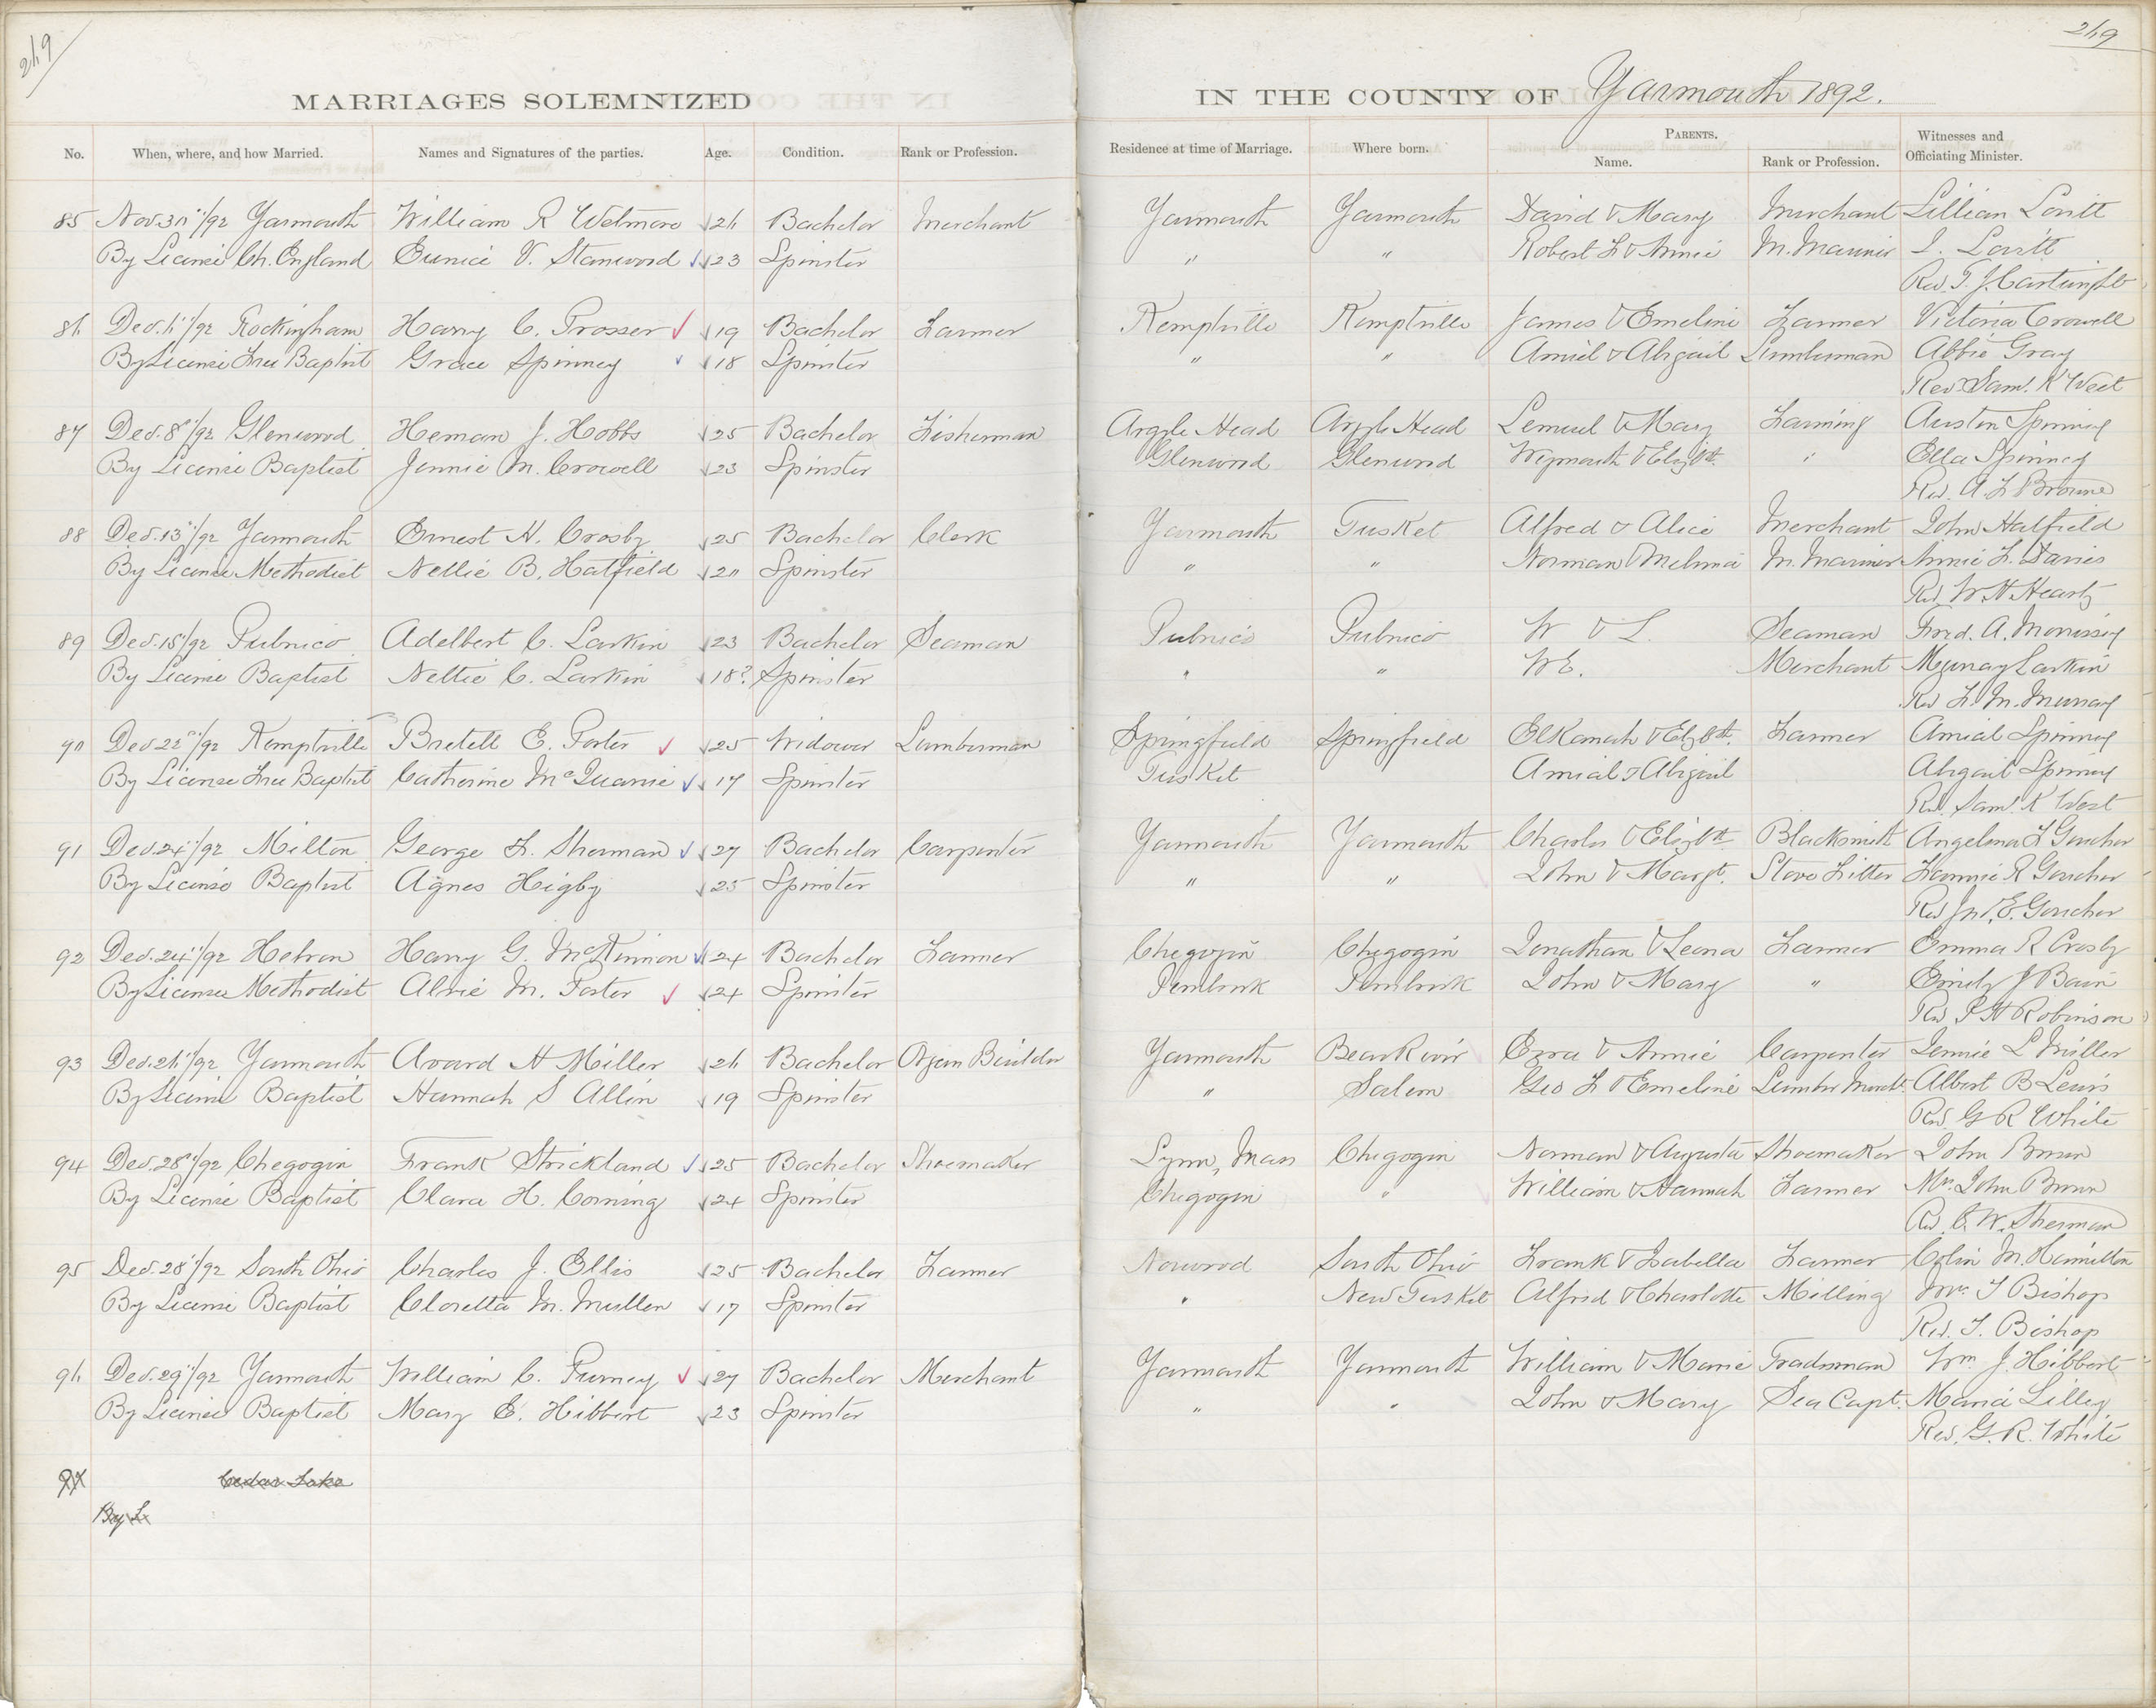 249
249
MARRIAGES SOLEMNIZED IN THE COUNTY OF Yarmouth 1892.
No. When, where, and how Married. Names and Signatures of the parties. Age. Condition. Rank or Profession. Residence at time of Marriage. Where born. PARENTS. Name. Rank or Profession. Witnesses and Officiating Minister.
85 Nov. 30"/92 Yarmouth William R Wetmore 26 Bachelor Merchant Yarmouth Yarmouth David & Mary Merchant Lillian Lovitt
By License Ch. England Eunice V. Stanwood 23 Spinster " " Robert L & Annie M. Mariner I. Lovitt
Rev. T. J. Cartwright
86 Dec. 6"/92 Rockingham Harry C. Prosser 19 Bachelor Farmer Kemptville Kemptville James & Emeline Farmer Victoria Crowell
By License Free Baptist Grace Spinney 18 Spinster " " Amiel & Abigail Lumberman Abbie Gray
Rev. Saml. K West
87 Dec. 8"/92 Glenwood Heman J. Hobbs 25 Bachelor Fisherman Argyle Head Argyle Head Lemuel & Mary Farming Austin Spinney
By License Baptist Jennie M. Crowell 23 Spinster Glenwood Glenwood Weymouth & Elizbth. " Ella Spinney
Rev. A. F Browne
88 Dec. 13"/92 Yarmouth Ernest H. Crosby 25 Bachelor Clerk Yarmouth Tusket Alfred & Alice Merchant John Hatfield
By License Methodist Nellie B. Hatfield 20 Spinster " " Norman & Melina M. Mariner Annie L. Davis
Rev. W. H Heartz
89 Dec. 15"/92 Pubnico Adelbert C. Larkin 23 Bachelor Seaman Pubnico Pubnico W & L. Seaman Ford. A. Morrissey
By License Baptist Nettie C. Larkin 18? Spinster " " W E. Merchant Murray Larkin
Rev F. M. Murray
90 Dec 22"/92 Kemptville Bretell E. Porter 25 Widower Lumberman Springfield Springfield Elkanah & Elzbth. Farmer Amial Spinney
By License Free Baptist Catherine McQuarrie 17 Spinster Tusket Amial & Abigail Abigail Spinney
Rev. Saml. K West
91 Dec. 24"/92 Milton George F. Sherman 27 Bachelor Carpenter Yarmouth Yarmouth Charles & Elizbth Blacksmith Angelena F Goucher
By License Baptist Agnes Higby 25 Spinster " " John & Margt. Stove Fitter Fannie R Goucher
Rev Jno. E. Goucher
92 Dec. 24"/92 Hebron Harry G. McKinnon 24 Bachelor Farmer Chegogin Chegogin Jonathan & Leona Farmer Emma R Crosby
By License Methodist Alvie M. Porter 24 Spinster Pembrok Pembrok John & Mary " Emily J Bain
Rev P H Robinson
93 Dec. 26"/92 Yarmouth Avard H Miller 26 Bachelor Organ Builder Yarmouth Bear River Ezra & Annie Carpenter Jennie L Miller
By License Baptist Hannah S Allen 19 Spinster " Salem Geo F & Emeline Lumber Mercht. Albert B Lewis
Rev. G R White
94 Dec. 28"/92 Chegogin Frank Strickland 25 Bachelor Shoemaker Lynn, Mass Chegogin Norman & Augusta Shoemaker John Brown
By License Baptist Clara H. Corning 24 Spinster Chegogin " William & Hannah Farmer Mrs. John Brown
Rev. C. W. Sherman
95 Dec. 28"/92 South Ohio Charles J. Ellis 25 Bachelor Farmer Norwood South Ohio Frank & Isabella Farmer Colin M. Hamilton
By License Baptist Cloretta M. Mullen 17 Spinster " New Tusket Alfred & Charlotte Milling Mrs. T Bishop
Rev. T. Bishop
96 Dec. 29"/92 Yarmouth William C. Purney 27 Bachelor Merchant Yarmouth Yarmouth William & Marie Tradesman Wm J. Hibbert
By License Baptist Mary E. Hibbert 23 Spinster " " John & Mary Sea Capt. Maria Lilley
Rev. G. R. White
97 Cedar Lake
By L